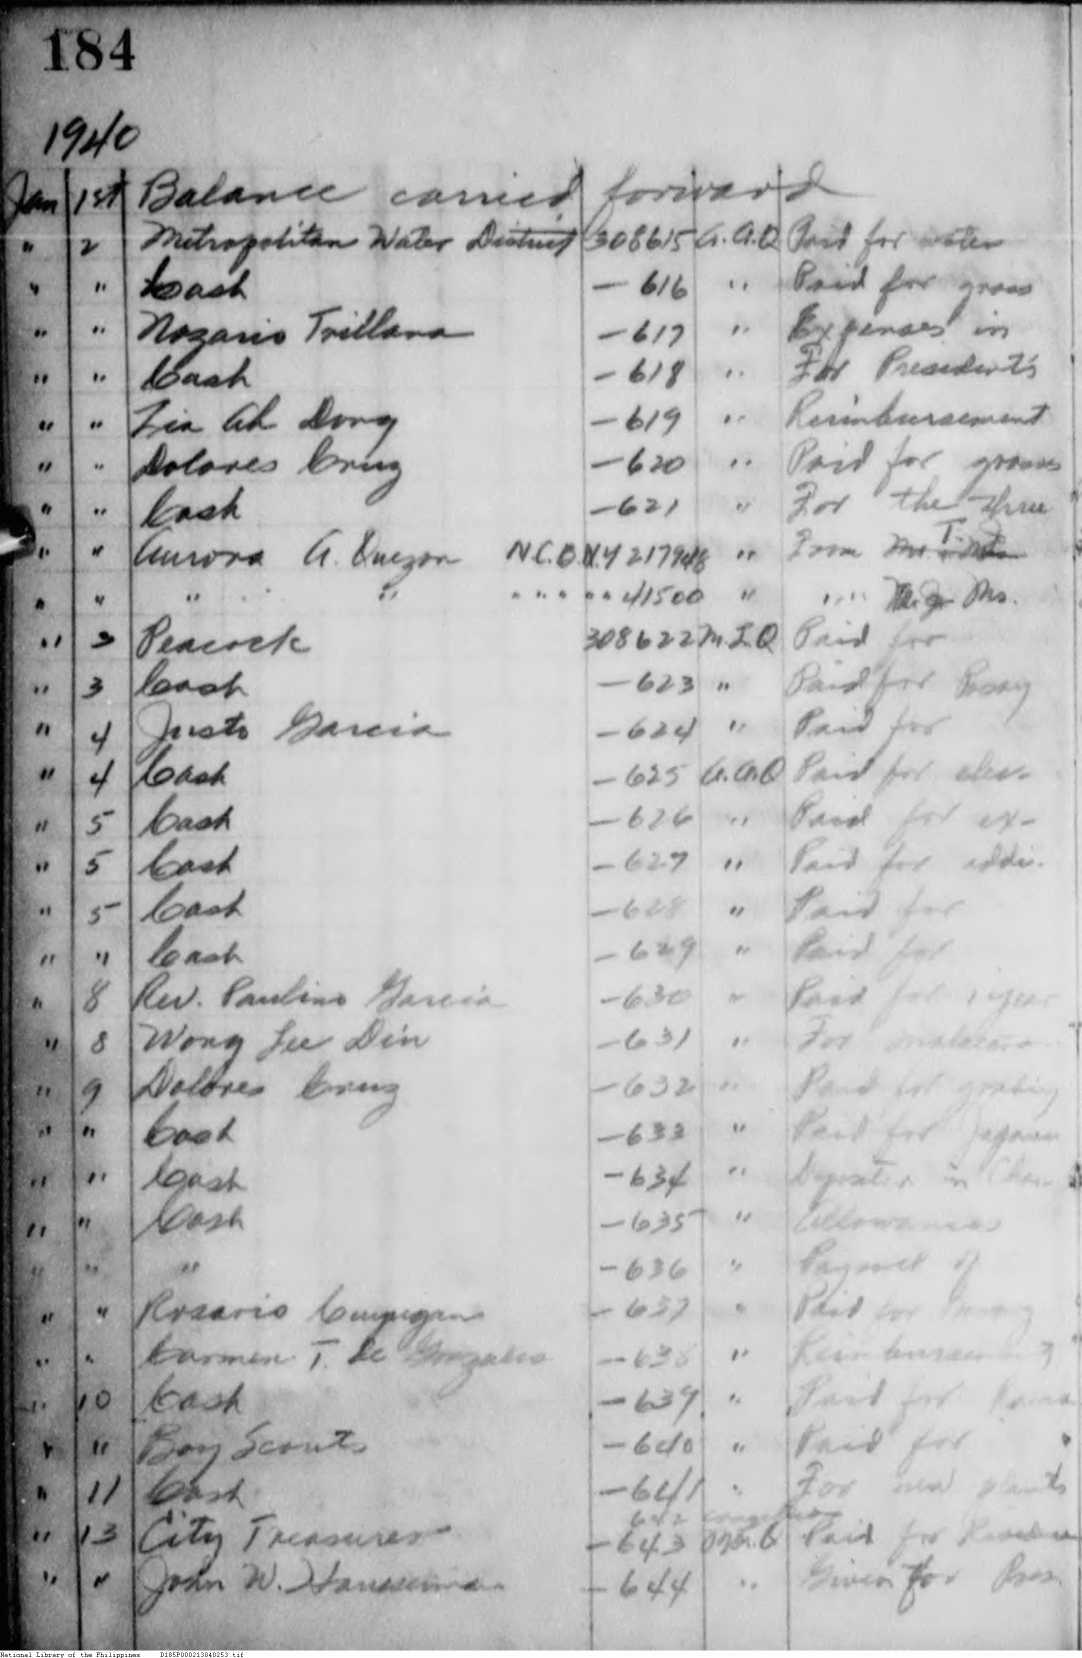 184
1940
Jan 1st Balance carried forward
" 2 Metropolitan Water District 308615 A.A.Q Paid for water
" " Cash - 616 " Paid for grass
" " Nazario Trillana - 617 " Expenses in
" " Cash - 618 " For President's
" " Lia Ah Dong - 619 " Reimbursement
" " Dolores Cruz - 620 " Paid for grasses
" " Cash - 621 " For the three
" " Aurora A. Quezon N.C.B.N.Y 217948 " From
" " " " " " " " " 41500 " " " Ms.
" 3 Peacock 308622 M.L.Q Paid for
" 3 Cash - 623 " Paid for Pasay
" 4 Justo Garcia - 624 " Paid for
" 4 Cash - 625 A.A.Q Paid for elec-
" 5 Cash - 626 " Paid for ex-
" 5 Cash - 627 " Paid for addi-
" 5 Cash - 628 " Paid for
" " Cash - 629 " Paid for
" 8 Rev. Paulino Garcia - 630 " Paid for 1 year
" 8 Wong Lee Din - 631 " For
" 9 Dolores Cruz - 632 " Paid for
" " Cash - 633 " Paid for
" " Cash - 634 " Deposited in
" " Cash - 635 " Allowances
" " " - 636 " Payroll of
" " Rosario - 637 " Paid for
" " Carmen T. de Gonzales - 638 " Reimbursement
" 10 Cash - 639 " Paid for
" " Boy Scouts - 640 " Paid for
" 11 Cash - 641 " For new plants
642
" 13 City Treasurer - 643 Paid for
" " John W. Hausserman - 644 " Given for Pres.
National Library of the Philippines D185P000213840253.tif